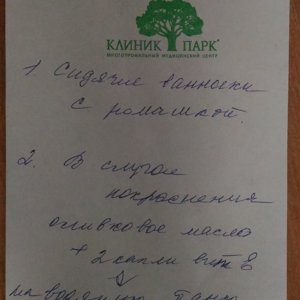 КЛИНИК ПАРК
МНОГОПРОФИЛЬНЫЙ МЕДИЦИНСКИЙ ЦЕНТР
1 Сидячие ванночки
с ромашкой.
2. В случае
покраснения
оливковое масло
+ 2 капли вит Е
на водяную баню